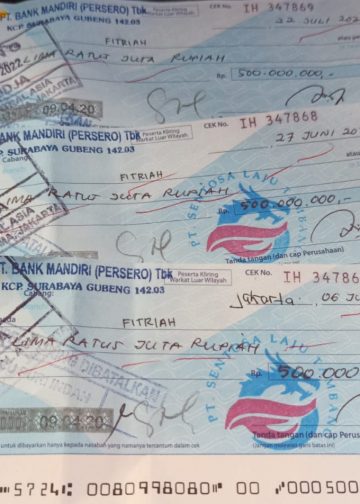 PT. BANK MANDIRI (PERSERO) Tbk
KCP. SURABAYA GUBENG 142.03
Peserta Kliring
Warkat Luar Wilayah
CEK No. IH 347869
22 JULI 202
FITRIAH
LIMA RATUS JUTA RUPIAH
Rp. 500.000.000,-
09.04.20
BANK MANDIRI (PERSERO) Tbk
SURABAYA GUBENG 142.03
Cabang:
Peserta Kliring
Warkat Luar Wilayah
CEK No. IH 347868
27 JUNI 20
FITRIAH
LIMA RATUS JUTA RUPIAH
Rp. 500.000.000,-
PT. SENTOSA LAJU TAMBAN
Tanda tangan (dan cap Perusahaan)
PT. BANK MANDIRI (PERSERO) Tbk
KCP. SURABAYA GUBENG 142.03
Cabang:
Peserta Kliring
Warkat Luar Wilayah
CEK No. IH 34786
Jakarta, 06 JU
FITRIAH
LIMA RATUS JUTA RUPIAH
DIBATALKAN
Rp. 500.000
09.04.20
PT. SENTOSA LAJU TAMBAN
Tanda tangan (dan cap Perusah
untuk dibayarkan hanya kepada nasabah yang namanya tercantum dalam cek
(Jangan melewati garis batas ini)
5724 0080998080 00 000500